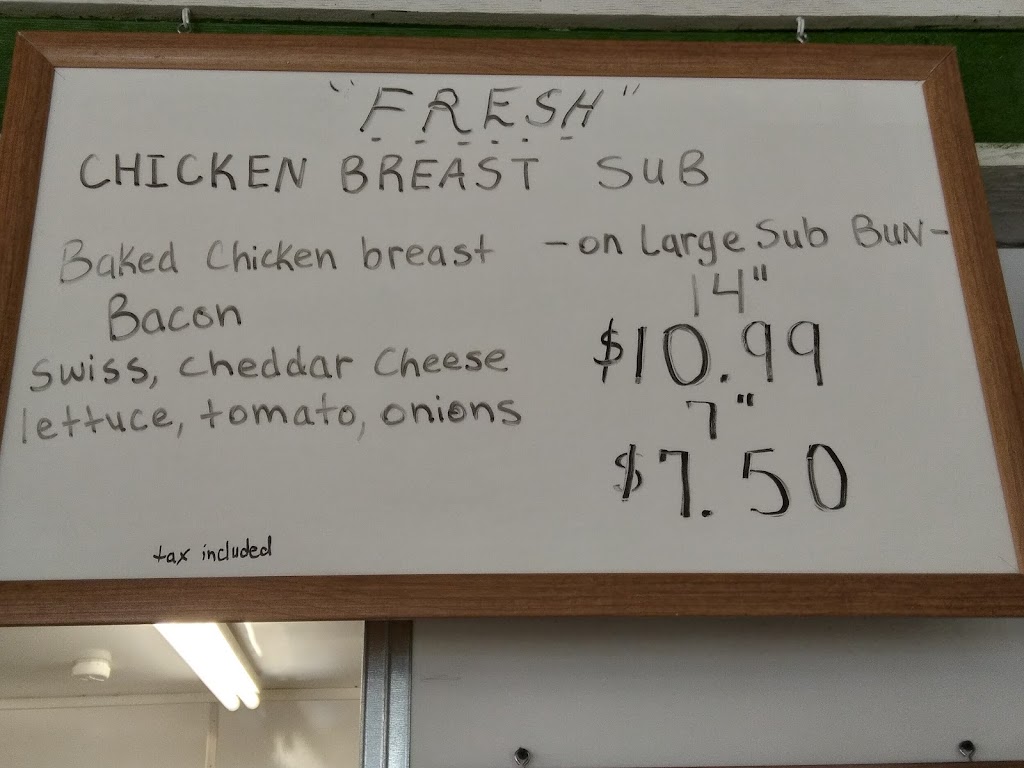 "FRESH"
CHICKEN BREAST SUB
Baked Chicken breast
Bacon
Swiss, Cheddar Cheese
lettuce, tomato, onions
-on Large Sub BUN-
14"
$10.99
7"
$7.50
tax included